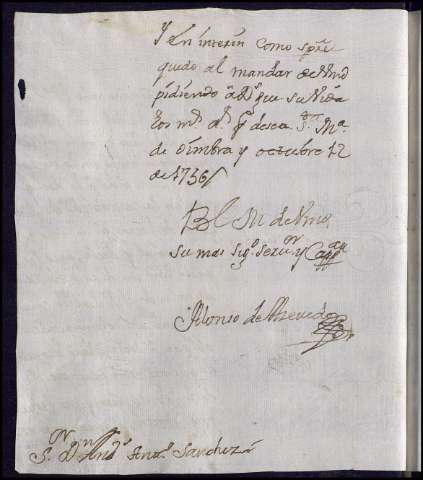 Y en interin como spre
quedo al mandar de Vmd
pidiendo a Ds que su Vida
los ms. as. q desea Sta Ma.
de Oimbra y octubre 12
de 1736
B L M de Vmd
su mas sigo. servor y Cappn
Alonso de Azevedo
Sor Dn Andres Anto. Sanchez